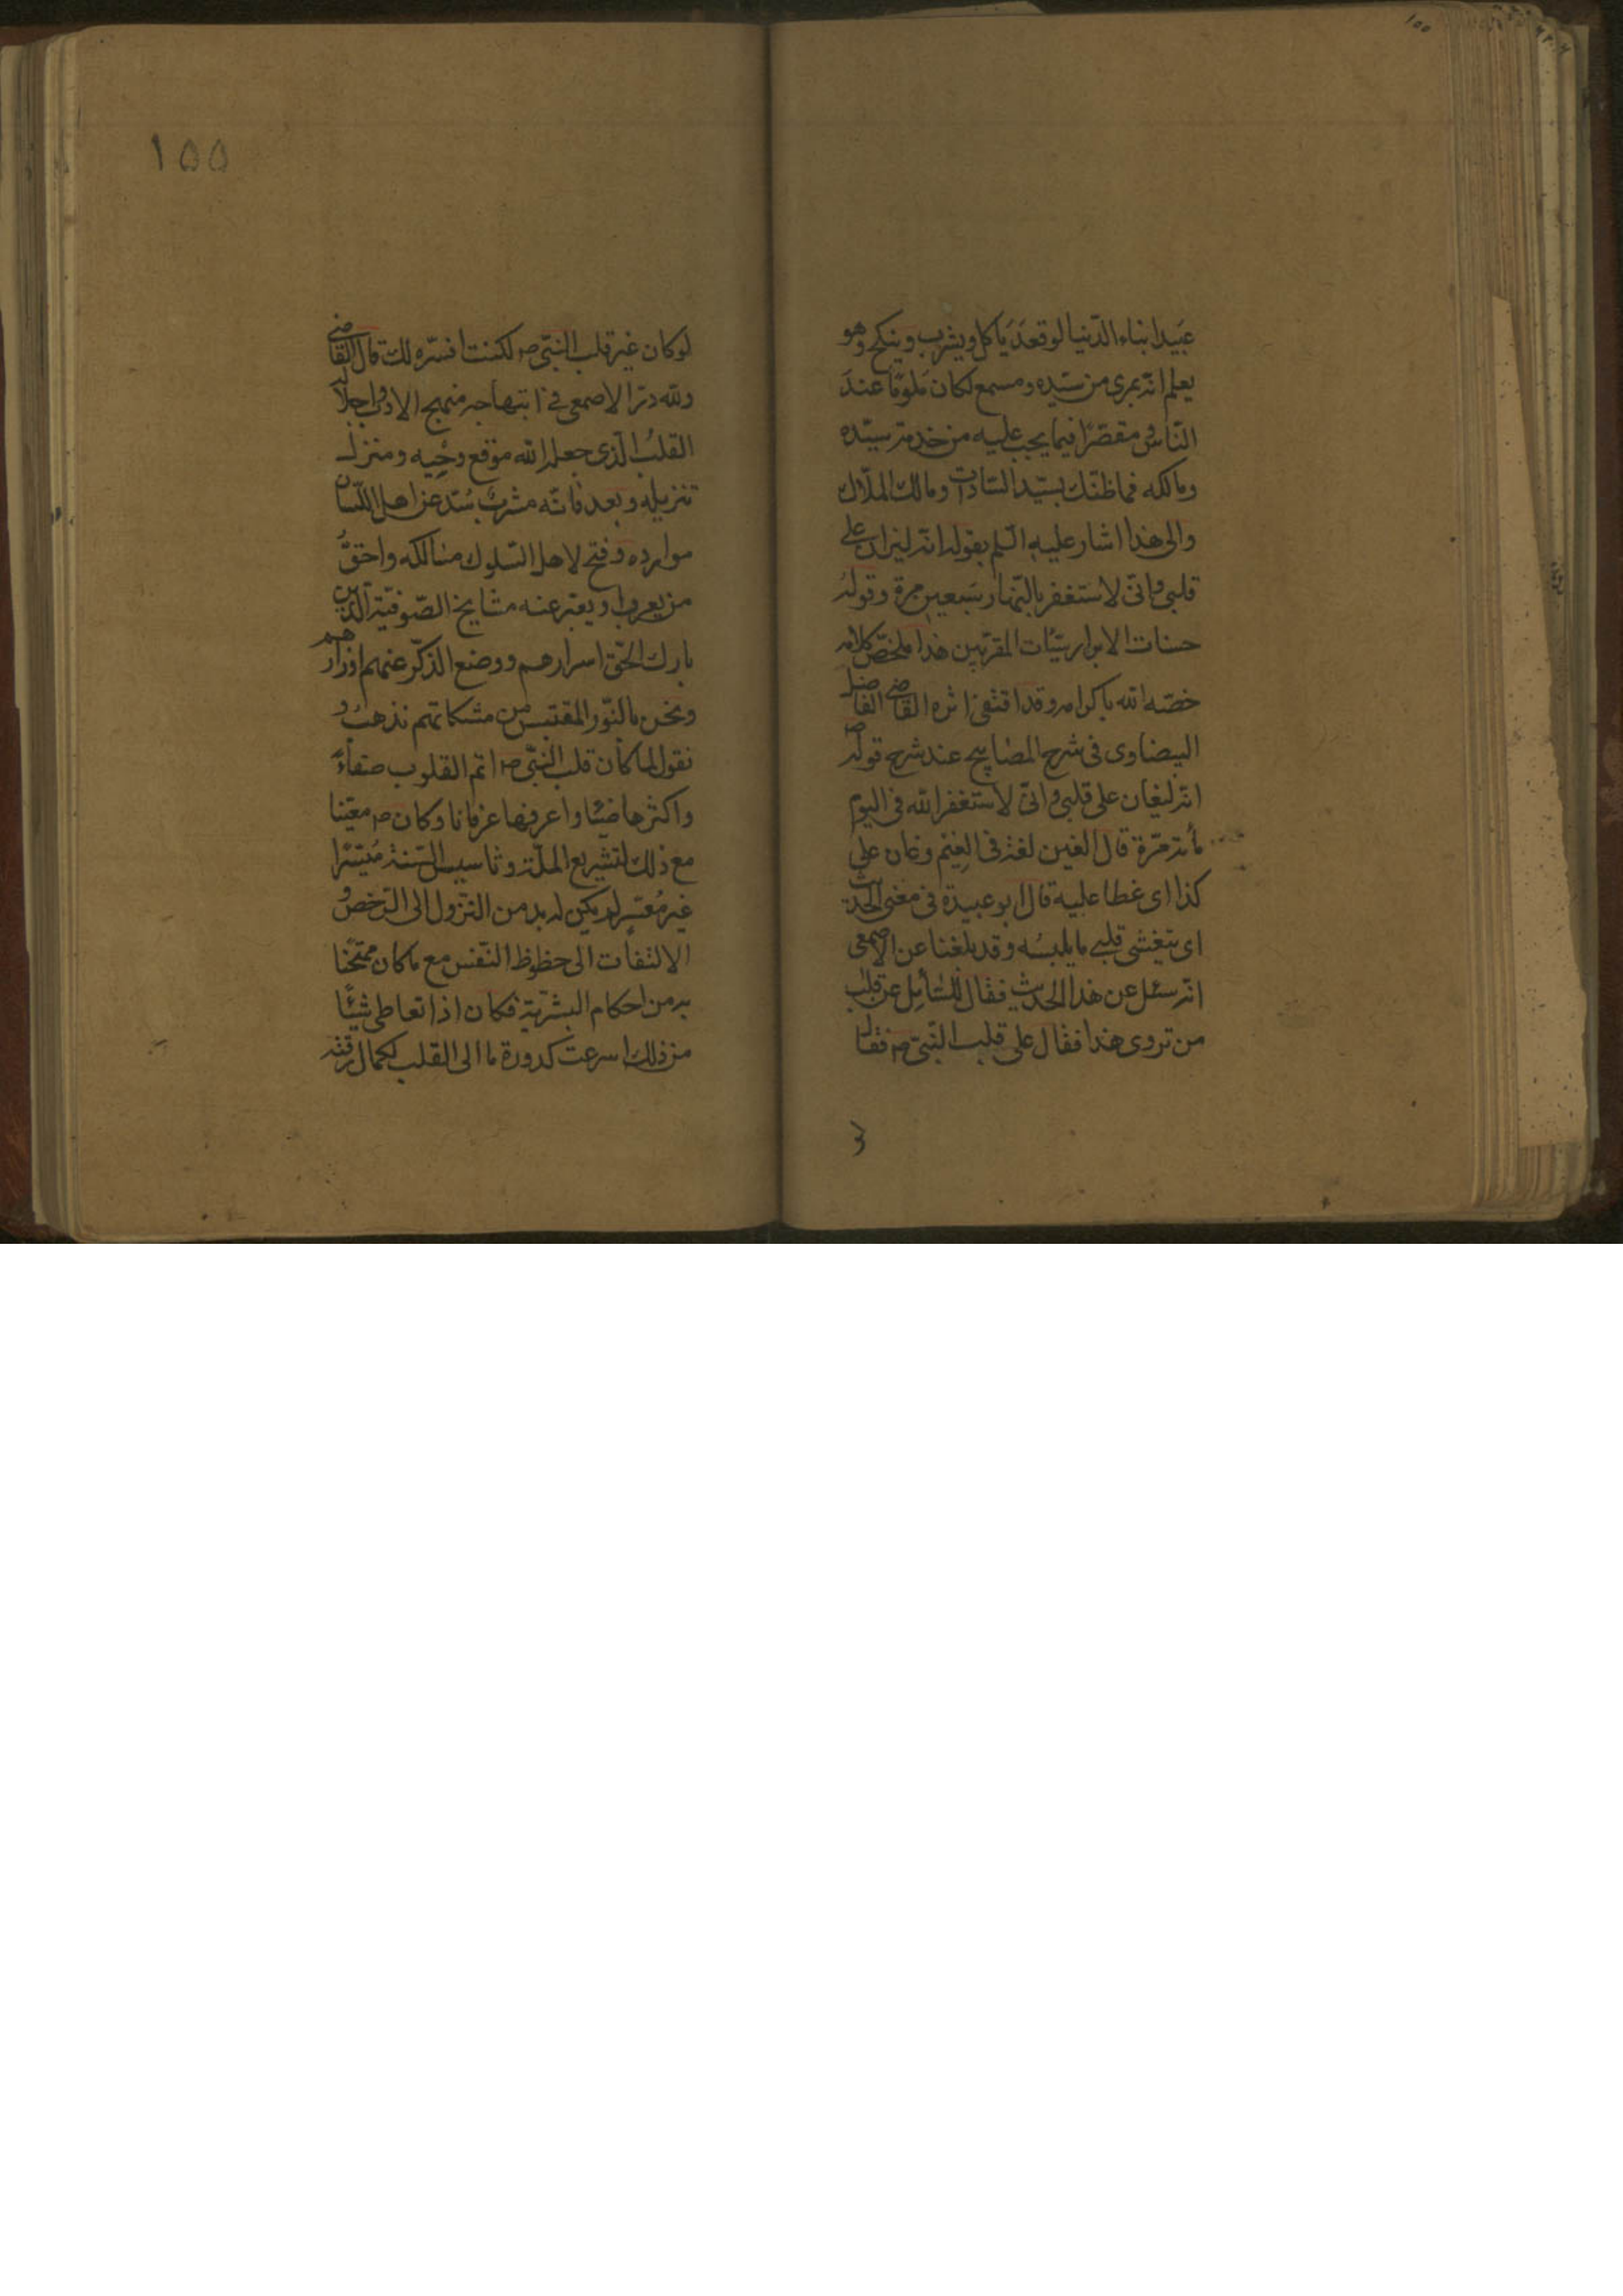 عبيد ابناء الدّنيا لو قعد ياكل ويشرب وينكح وهو
يعلم انّه بمرى من سيّده ومسمع لكان ملومًا عند
النّاس ومقصّرًا فيما يجب عليه من خدمة سيّده
ومالكه فما ظنّك بسيّد السّادات ومالك الملّاك
والى هذا اشار عليه السّلم بقوله انّه ليران على
قلبى وانّى لاستغفر بالنّهار سبعين مرة وقوله
حسنات الابرار سيّئات المقرّبين هذا ملخّص كلامه
خصّه الله باكرامه وقد اقتفى اثره القاضى الفاضل
البيضاوى فى شرح المصابيح عند شرح قوله ص
انّه ليغان على قلبى وانّى لاستغفر الله فى اليوم
مائة مرّة قال الغين لغة فى الغيم وغان على
كذا اى غطا عليه قال ابو عبيدة فى معنى الحديث
اى يتغشى قلبى ما يلبسه وقد بلغنا عن الاصمعى
انّه سئل عن هذا الحديث فقال للسّائل عن قلب
من تروى هذا فقال على قلب النّبى ص فقال
١٥٥
لو كان غير قلب النّبى ص لكنت افسّره لك قال القاضى
ولله درّ الاصمعى فى انتهاجه منهج الادب واجلال
القلب الّذى جعله الله موقع وحيه ومنزل
تنزيله وبعد فانّه مشرب سُدّ عن اهل اللّسان
موارده وفتح لاهل السّلوك مسالكه واحقّ
من يعرب او يعبّر عنه مشايخ الصّوفيّة الّذين
بارك الحقّ اسرارهم ووضع الذكر عنهم اوزارهم
ونحن بالنّور المقتبس من مشكاتهم نذهب و
نقول لما كان قلب النّبى ص اتم القلوب صفاءً
واكثرها ضياء واعرفها عرفانا وكان ص معيّنا
مع ذلك لتشريع الملّة وتاسيس السّنة ميسّرا
غير معسّر لم يكن له بد من النّزول الى الرّخص و
الالتفات الى حظوظ النّفس مع ما كان ممتحنا
به من احكام البشريّة فكان اذا تعاطى شيئًا
من ذلك اسرعت كدورة ما الى القلب لكمال رقته